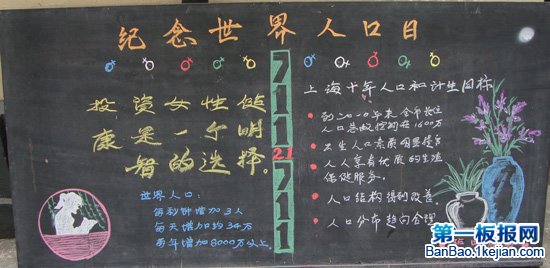 纪念世界人口日
投资女性健
康是一个明
智的选择。
世界人口:
每秒钟增加3人
每天增加约万
每年增加8000万以上。
7
1
1
21
7
1
1
上海十年人口和计生目标
到二0一0年末全市
人口总数控制在1600万
人口素质明显提高
人人享有优质的生殖
保健服务。
人口结构得到改善。
人口分布趋向合理
第一板报网
BanBao.1kejian.com